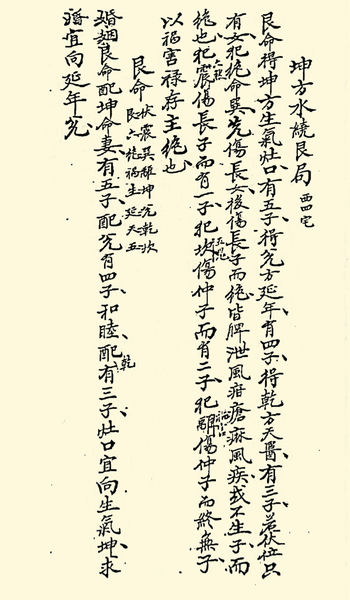 坤方水繞艮局 西四宅
艮命得坤方生氣灶口、有五子、得兌方延年、有四子、得乾方天醫、有三子、若伏位、只
有女、犯絕命巽、先傷長女、後傷長子而絕、皆脾泄風疳瘡痳風疾、或不生子、而
絕也、犯六煞震傷長子、而有一子、犯五鬼坎傷仲子、而有二子、犯禍害離傷仲子、而終無子、
以禍害祿存主絕也、
艮命 伏震巽離坤兌乾坎
艮六絕禍生延天五
婚姻艮命配坤命妻、有五子、配兌有四子、和睦、配乾有三子、灶口宜向生氣坤、求
婚宜向延年兌